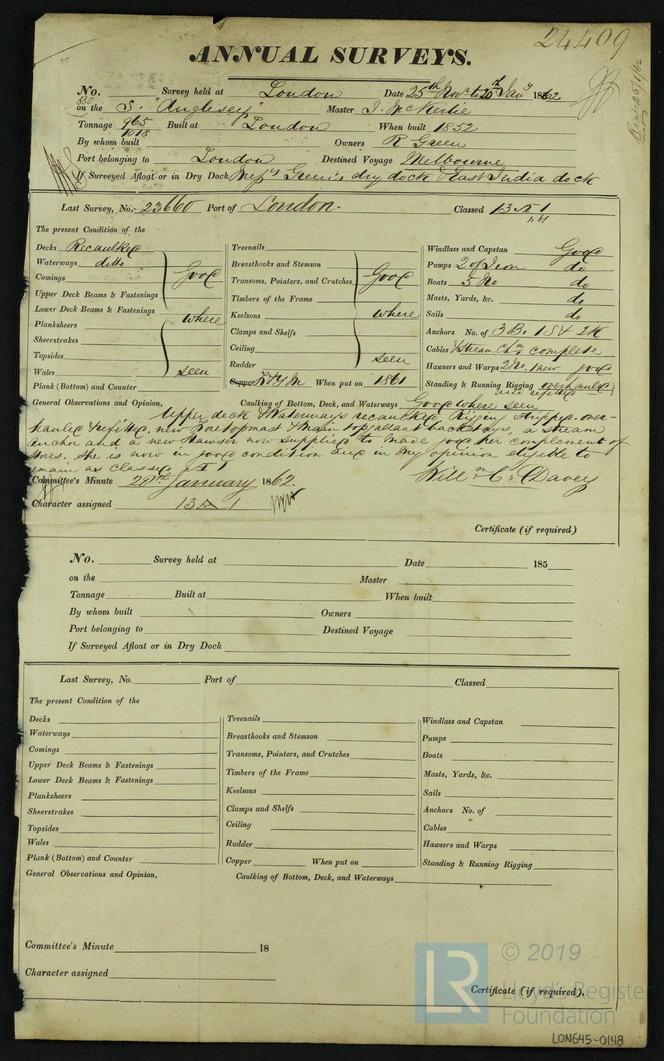 24409
ANNUAL SURVEYS.
No. Survey held at London Date 25th Novr to 20th Jany 1862
on the S. "Anglesey" Master J. McKerlie
Tonnage 965 Built at London When built 1852
1018
By whom built Owners R Green
Port belonging to London Destined Voyage Melbourne
If Surveyed Afloat or in Dry Dock Messrs Green's dry dock & East India dock
Last Survey, No. 23660 Port of London. Classed 13 A 1
The present Condition of the
Decks Recaulked
Waterways ditto
Comings
Upper Deck Beams & Fastenings
Lower Deck Beams & Fastenings
Planksheers
Sheerstrakes
Topsides
Wales
Plank (Bottom) and Counter
Good
where
seen
Treenails
Breasthooks and Stemson
Transoms, Pointers, and Crutches
Timbers of the Frame
Keelsons
Clamps and Shelfs
Ceiling
Rudder
Copper Y M When put on 1861
Good
where
seen
Windlass and Capstan Good
Pumps 2 of Iron do
Boats 5 No do
Masts, Yards, &c. do
Sails do
Anchors No. of 3 B. 1 S & 2 K
Cables & Stream Chn complete
Hawsers and Warps 2 No. 1 new good
Standing & Running Rigging overhauled
and refitted
General Observations and Opinion, Caulking of Bottom, Deck, and Waterways Good where seen
Upper deck & Waterways recaulked Rigging stripped over-
hauled & refitted, new Foretopmast & Main topgallant backstays, a stream
anchor and a new Hawser now supplied to made good her complement of
stores. She is now in good condition and in my opinion eligible to
remain as classed A 1
Willm C. Davey
Committee's Minute 28th January 1862.
Character assigned 13 A 1
Certificate (if required)
No. Survey held at Date 185
on the Master
Tonnage Built at When built
By whom built Owners
Port belonging to Destined Voyage
If Surveyed Afloat or in Dry Dock
Last Survey, No. Port of Classed
The present Condition of the
Decks
Waterways
Comings
Upper Deck Beams & Fastenings
Lower Deck Beams & Fastenings
Planksheers
Sheerstrakes
Topsides
Wales
Plank (Bottom) and Counter
Treenails
Breasthooks and Stemson
Transoms, Pointers, and Crutches
Timbers of the Frame
Keelsons
Clamps and Shelfs
Ceiling
Rudder
Copper When put on
Windlass and Capstan
Pumps
Boats
Masts, Yards, &c.
Sails
Anchors No. of
Cables
Hawsers and Warps
Standing & Running Rigging
General Observations and Opinion, Caulking of Bottom, Deck, and Waterways
Committee's Minute 18
Character assigned
Certificate (if required).
LR
© 2019
Lloyd's Register
Foundation
LON645-0148